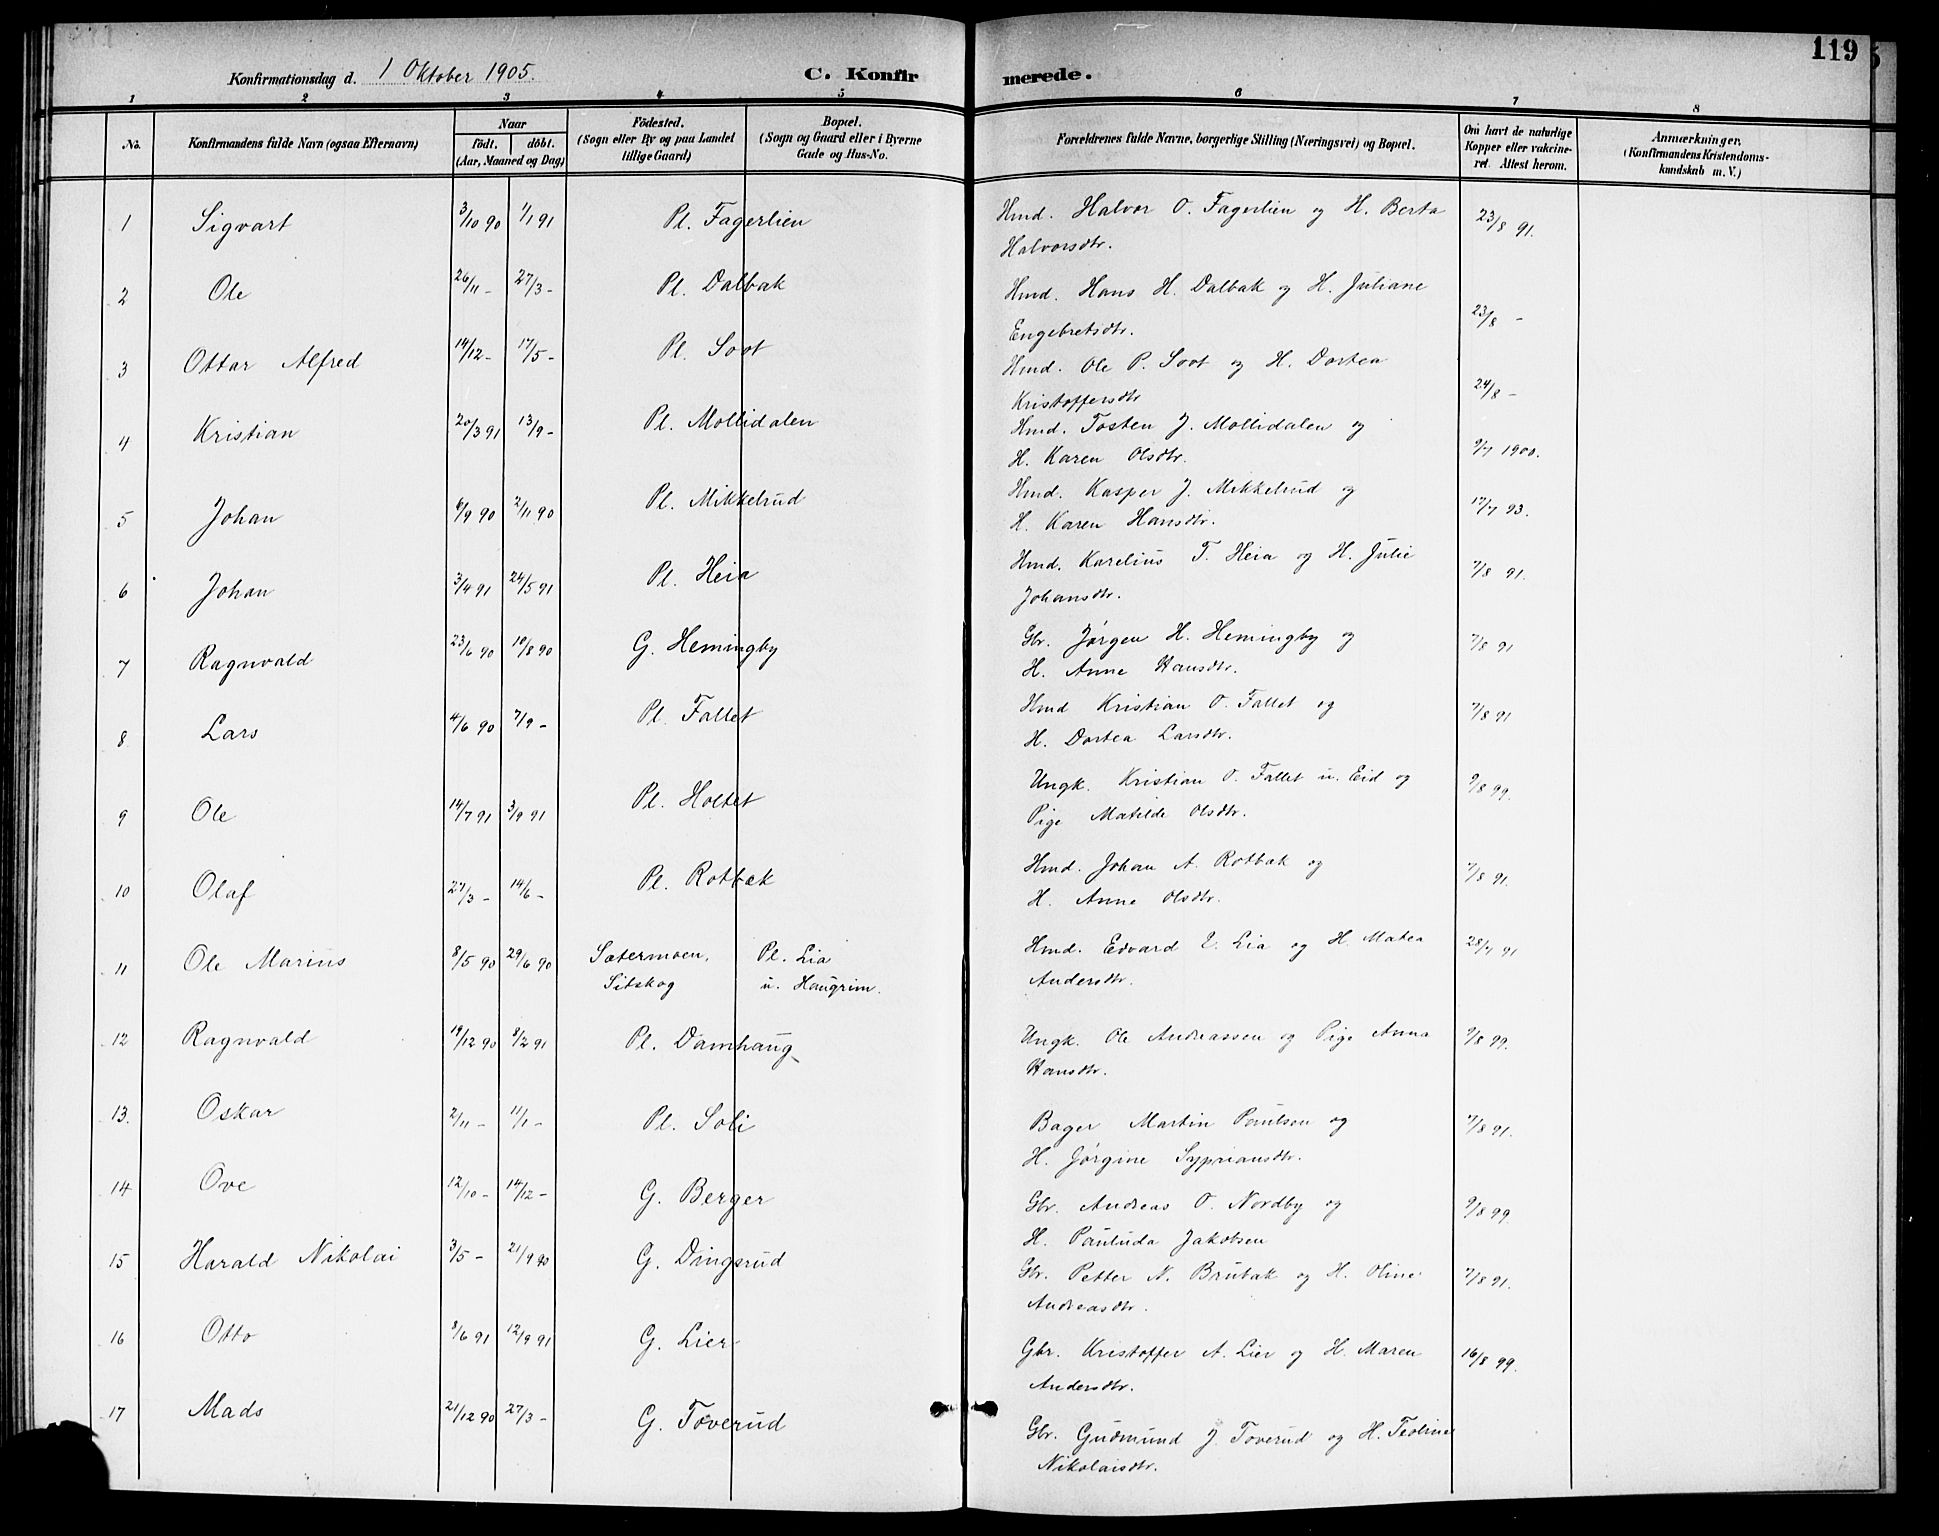 119
Konfirmationsdag d. 1 Oktober 1905. C. Konfirmerede.
1 2 3 4 5 6 7 8
No. Konfirmandens fulde Navn (ogsaa Efternavn) Naar födt. döbt. (Aar, Maaned og Dag) Födested. (Sogn eller By og paa Landet tillige Gaard) Bopæl. (Sogn og Gaard eller i Byerne Gade og Hus-No. Forældrenes fulde Navne, borgerlige Stilling (Næringsvei) og Bopæl. Om havt de naturlige Kopper eller vakcineret. Attest herom. Anmærkninger, (Konfirmandens Kristendomskundskab m. V.)
1 Sigvart 3/10 90 1/1 91 Pl. Fagerlien Hmd. Halvor O. Fagerlien og H. Berta 23/8 91.
Halvorsdtr.
2 Ole 26/11 - 27/3 - Pl. Dalbak Hmd. Hans H. Dalbak og H. Juliane 23/8 -
Engebretsdtr.
3 Ottar Alfred 14/12 - 17/5 - Pl. Soot Hmd. Ole P. Soot og H. Dortea 24/8 -
Kristoffersdtr
4 Kristian 20/3 91 13/9 - Pl. Mollidalen Hmd. Tosten J. Mollidalen og 9/7 1900.
H. Karen Olsdtr.
5 Johan 6/9 90 2/11 90 Pl. Mikkelrud Hmd. Kasper J. Mikkelrud og 17/7 93.
H. Karen Hansdtr.
6 Johan 3/4 91 24/5 91 Pl. Heia Hmd. Karelius T. Heia og H. Julie 7/8 91.
Johansdtr.
7 Ragnvald 23/6 90 10/8 90 G. Hemingby Gbr. Jørgen H. Hemingby og 7/8 91
H. Anne Hansdtr.
8 Lars 4/6 90 7/9 - Pl. Fallet Hmd Kristian O. Fallet og 7/8 91
H. Dortea Larsdtr.
9 Ole 14/7 91 3/9 91 Pl. Holtet Ungk. Kristian O. Fallet u. Eid og 9/8 99.
Pige Matilde Olsdtr.
10 Olaf 27/3 - 14/6 - Pl. Rotbæk Hmd. Johan A. Rotbæk og 7/8 91.
H. Anne Olsdtr.
11 Ole Marius 8/5 90 29/6 90 Sætermoen, Pl. Lia Hmd. Edvard E. Lia og H. Matea 28/7 91
Sitskog u. Haugrim. Andersdtr.
12 Ragnvald 19/12 90 8/2 91 Pl. Damhaug Ungk. Ole Andreassen og Pige Anna 9/8 99.
Hansdtr.
13. Oskar 2/11 - 11/1 - Pl. Soli Bager Martin Paulsen og 7/8 91.
H. Jørgine Sypriansdtr.
14 Ove 12/10 - 14/12 - G. Berger Gbr. Andreas O. Nordby og 9/8 99.
H. Pauluda Jakobsen
15 Harald Nikolai 3/5 - 21/9 90 G. Dingsrud Gbr. Petter N. Brubak og H. Oline 7/8 91.
Andreasdtr.
16 Otto 8/6 91 12/9 91 G. Lier Gbr. Kristoffer A. Lier og H. Maren 16/8 99.
Andersdtr.
17 Mads 21/12 90 27/3 - G. Toverud Gbr. Gudmund J. Toverud og H. Teoline
Nikolaisdtr.